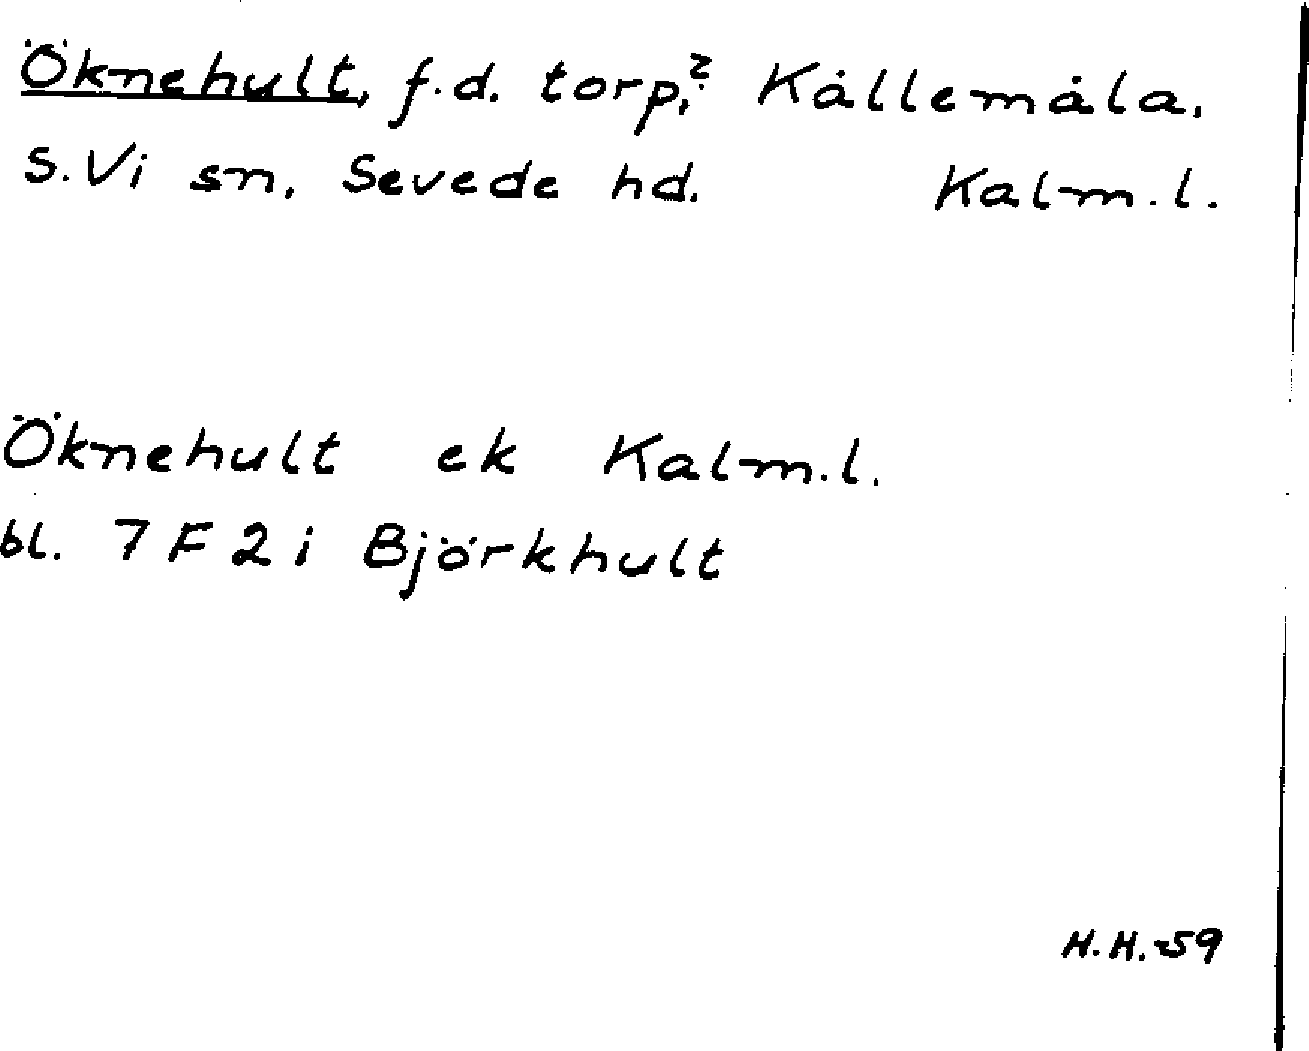 Öknehult, f.d. torp,? Kållemåla,
S. Vi sn, Sevede hd. Kalm.l.
Öknehult ek Kalm.l.
bl. 7 F 2 i Björkhult
H.H.-59